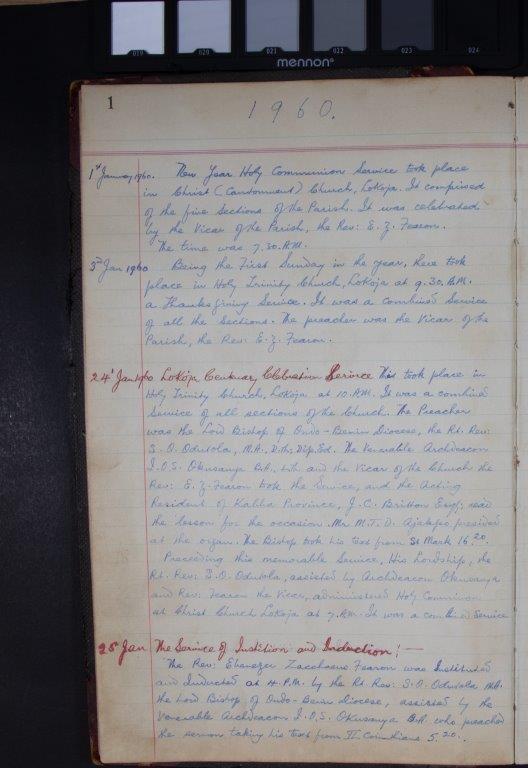 019 020 021 022 023 024
mennon
1
1960.
1st January 1960. New Year Holy Communion Service took place
in Christ (Cantonment) Church, Lokoja. It comprised
of the five Sections of the Parish. It was celebrated
by the Vicar of the Parish, the Rev: E. Z. Fearon.
The time was 7.30. A.M.
3rd Jan 1960 Being the First Sunday in the year, there took
place in Holy Trinity Church, Lokoja at 9.30. A.M.
a Thanksgiving Service. It was a combined Service
of all the Sections. The preacher was the Vicar of the
Parish, the Rev: E. Z. Fearon.
24th Jan 1960 Lokoja Centenary Celebration Service This took place in
Holy Trinity Church, Lokoja at 10. A.M. It was a combined
Service of all sections of the Church. The Preacher
was the Lord Bishop of Ondo-Benin Diocese, the Rt. Rev:
S. O. Odutola, M.A., D.th; Dip. Ed. The Venerable Archdeacon
I.O.S. Okusanya B.A., L.th and the Vicar of the Church the
Rev: E. Z. Fearon took the Service, and the Acting
Resident of Kabba Province, J. C. Britton Esqr; read
the lesson for the occasion. Mr. M.T.D. Ajakpo presided
at the organ. The Bishop took his text from St Mark 16.20.
Preceeding this memorable Service, His Lordship, the
Rt. Rev: S.O. Odutola, assisted by Archdeacon Okusanya
and Rev: Fearon the Vicar, administered Holy Communion
at Christ Church Lokoja at 7. A.M. It was a combined Service
25 Jan The Service of Institution and Induction! —
The Rev: Ebenezer Zacchaeus Fearon was Instituted
and Inducted at 4. P.M. by the Rt Rev: S.O. Odutola M.A.
the Lord Bishop of Ondo-Benin diocese, assisted by the
Venerable Archdeacon I.O.S. Okusanya B.A. who preached
the sermon taking his text from II Corinthians 5.20.